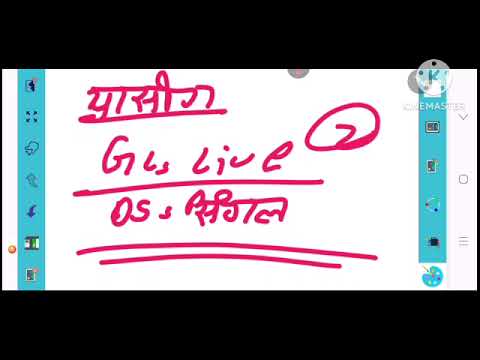 यासीग
GL, Live 2
DS, सिंगल
KINEMASTER